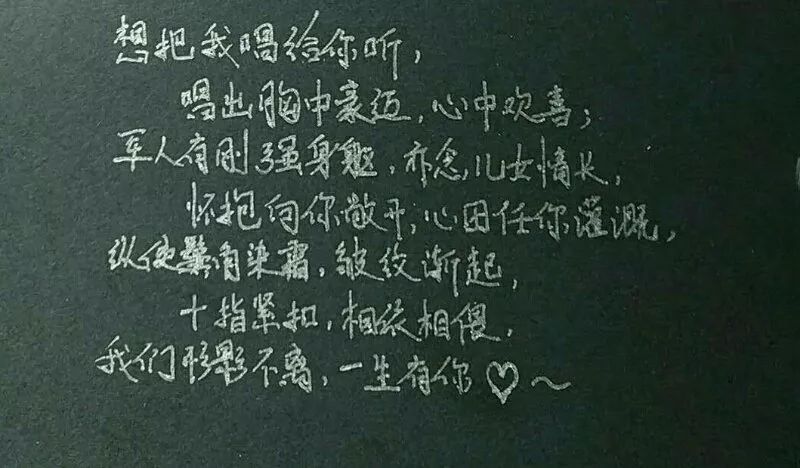 想把我唱给你听，
唱出胸中豪迈，心中欢喜；
军人有刚强身躯，亦念儿女情长，
怀抱向你敞开，心田任你灌溉，
纵使鬓角染霜，皱纹渐起，
十指紧扣，相依相偎，
我们形影不离，一生有你♡～